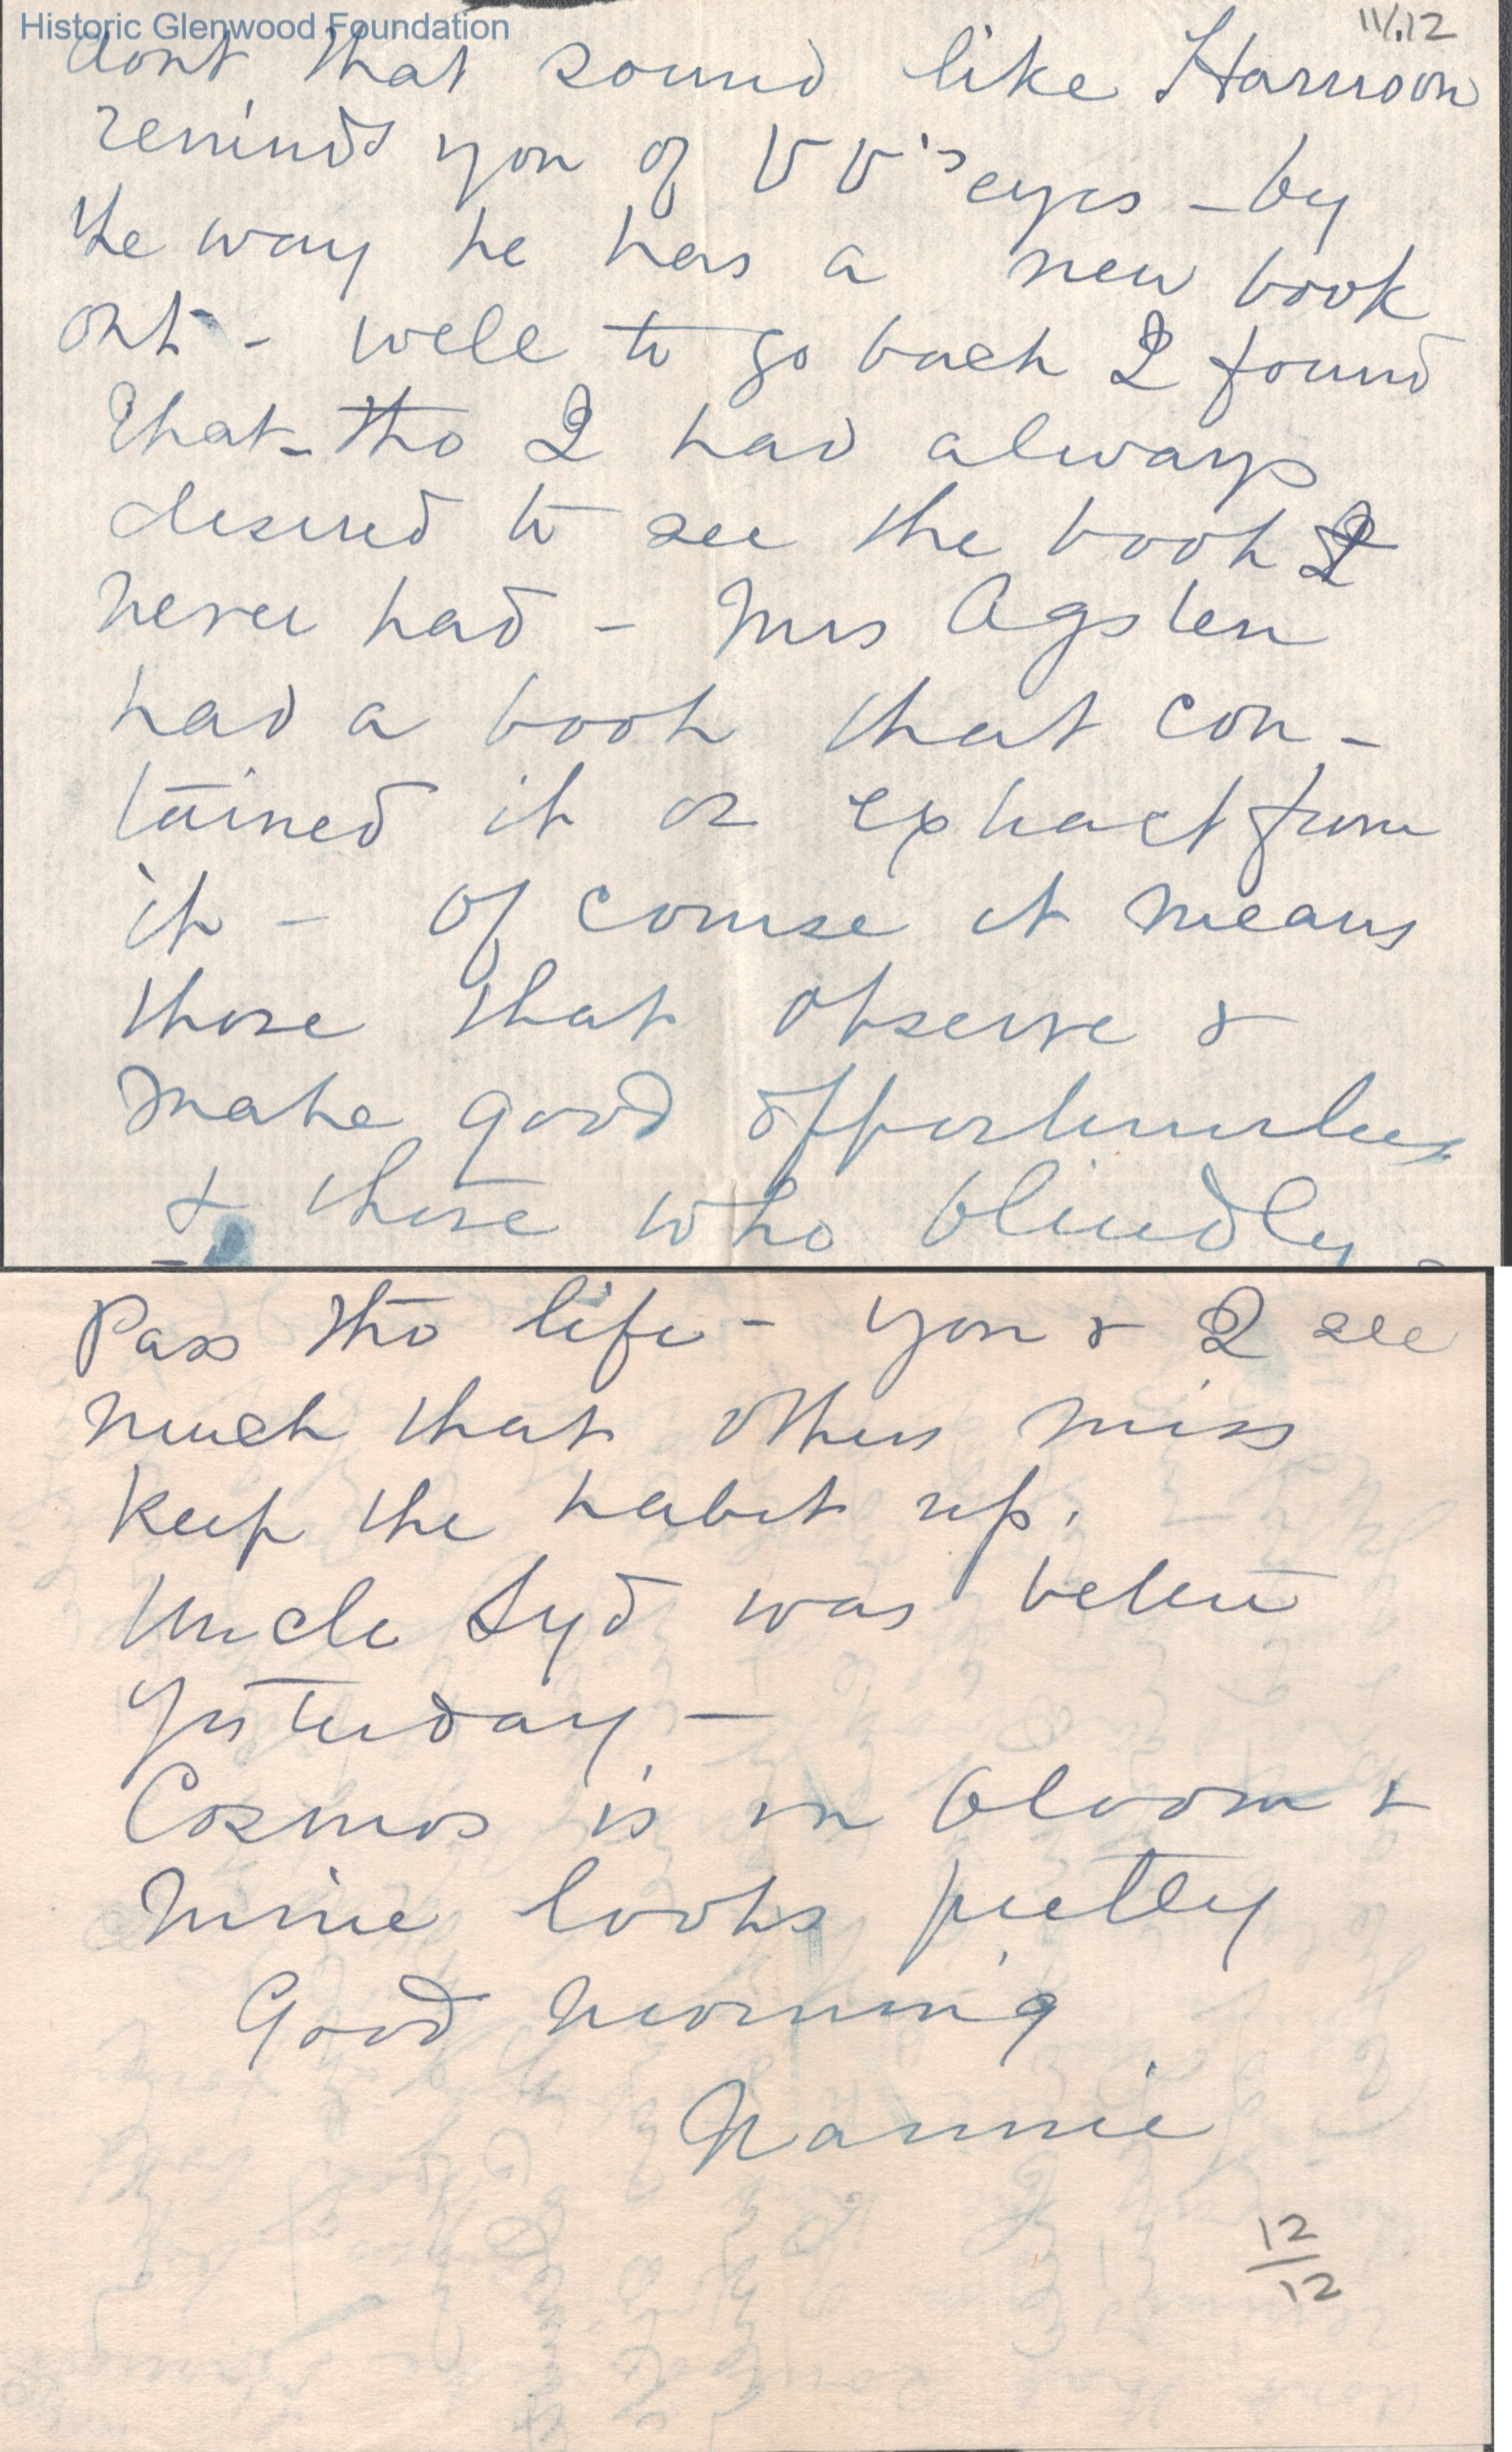 Historic Glenwood Foundation
11/.12
dont that sound like Harrison
reminds you of V V's eyes - by
the way he has a new book
out - well to go back I found
that - tho I had always
desired to see the book I
never had - Mrs Agsten
had a book that con-
tained it or extract from
it - of course it means
those that observe &
make good opportunities
& those who blindly -
Pass thro life - you & I see
much that others miss
keep the habit up.
Uncle Syd was better
yesterday -
Cosmos is in bloom &
mine looks pretty
Good morning
Nannie
12
12